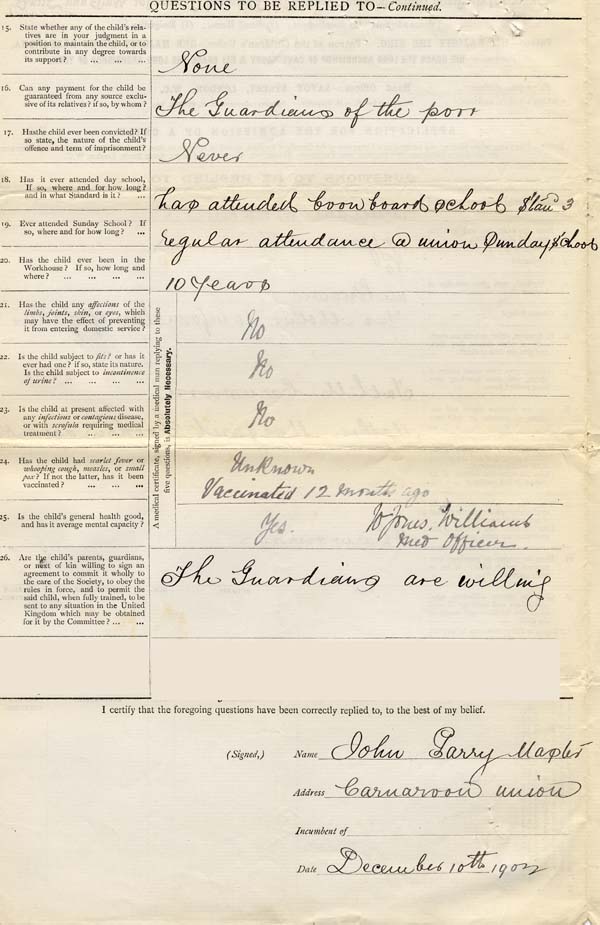 QUESTIONS TO BE REPLIED TO—Continued.
15. State whether any of the child's rela-
tives are in your judgment in a
position to maintain the child, or to
contribute in any degree towards
its support? ... ... ...
None
16. Can any payment for the child be
guaranteed from any source exclu-
sive of its relatives? if so, by whom?
The Guardians of the poor
17. Hasthe child ever been convicted? If
so state, the nature of the child's
offence and term of imprisonment?
Never
18. Has it ever attended day school,
If so, where and for how long?
and in what Standard is it? ...
has attended board school Stan 3
19. Ever attended Sunday School? If
so, where and for how long? ...
regular attendance @ union Sunday School
20. Has the child ever been in the
Workhouse? If so, how long and
where? ... ... ... ...
10 Years
A medical certificate, signed by a medical man replying to these
five questions, is Absolutely Necessary.
21. Has the child any affections of the
limbs, joints, skin, or eyes, which
may have the effect of preventing
it from entering domestic service?
No
22. Is the child subject to fits? or has it
ever had one? if so, state its nature.
Is the child subject to incontinence
of urine? ... ... ... ...
No
23. Is the child at present affected with
any infectious or contagious disease,
or with scrofula requiring medical
treatment? ... ... ... ...
No
24. Has the child had scarlet fever or
whooping cough, measles, or small
pox? If not the latter, has it been
vaccinated? ... ... ...
Unknown
Vaccinated 12 months ago
25. Is the child's general health good,
and has it average mental capacity? ...
Yes. W Jones. Williams
Med Officer.
26. Are the child's parents, guardians,
or next of kin willing to sign an
agreement to commit it wholly to
the care of the Society, to obey the
rules in force, and to permit the
said child, when fully trained, to be
sent to any situation in the United
Kingdom which may be obtained
for it by the Committee? ... ...
The Guardians are willing
I certify that the foregoing questions have been correctly replied to, to the best of my belief.
(Signed,) Name John Parry Master
Address Carnarvon union
Incumbent of
Date December 10th 1902